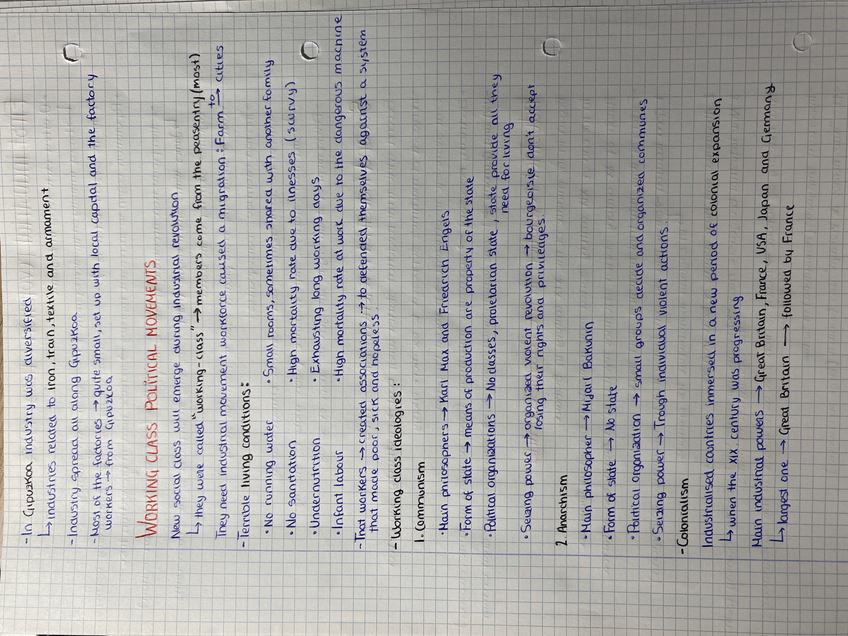 - In Gipuzkoa industry was diversified
↳ industries related to iron, train, textile and armament
- Industry spread all along Gipuzkoa.
- Most of the factories → quite small, set up with local capital and the factory
workers → from Gipuzkoa
WORKING CLASS POLITICAL MOVEMENTS
New social class will emerge during industrial revolution
↳ they were called "working-class" → members come from the peasentry (most)
They need industrial movement workforce caused a migration: Farm to → cities
- Terrible living conditions:
• No running water • Small rooms, sometimes shared with another family
• No sanitation • High mortality rate due to illnesses (scurvy)
• Undernutrition • Exhausting long working days
• Infant labour • High mortality rate at work due to the dangerous machine
- That workers → created associations → to defended themselves against a system
that made poor, sick and hopeless.
- Working class ideologies:
1. Communism
• Main philosophers → Karl Max and Friedrich Engels
• Form of state → means of production are property of the state
• Political organizations → No classes, proletarian state, state provide all they
need for living
• Seizing power → organized violent revolution → bourgeoisie don't accept
losing their rights and privileages.
2. Anarchism
• Main philosopher → Mijail Bakunin
• Form of state → No state
• Political organization → small groups decide and organized communes
• Seizing power → Trough individual violent actions.
- Colonialism
Industrialised countries inmersed in a new period of colonial expansion
↳ when the XIX century was progressing
Main industrial powers → Great Britain, France, USA, Japan and Germany.
↳ largest one → Great Britain → followed by France